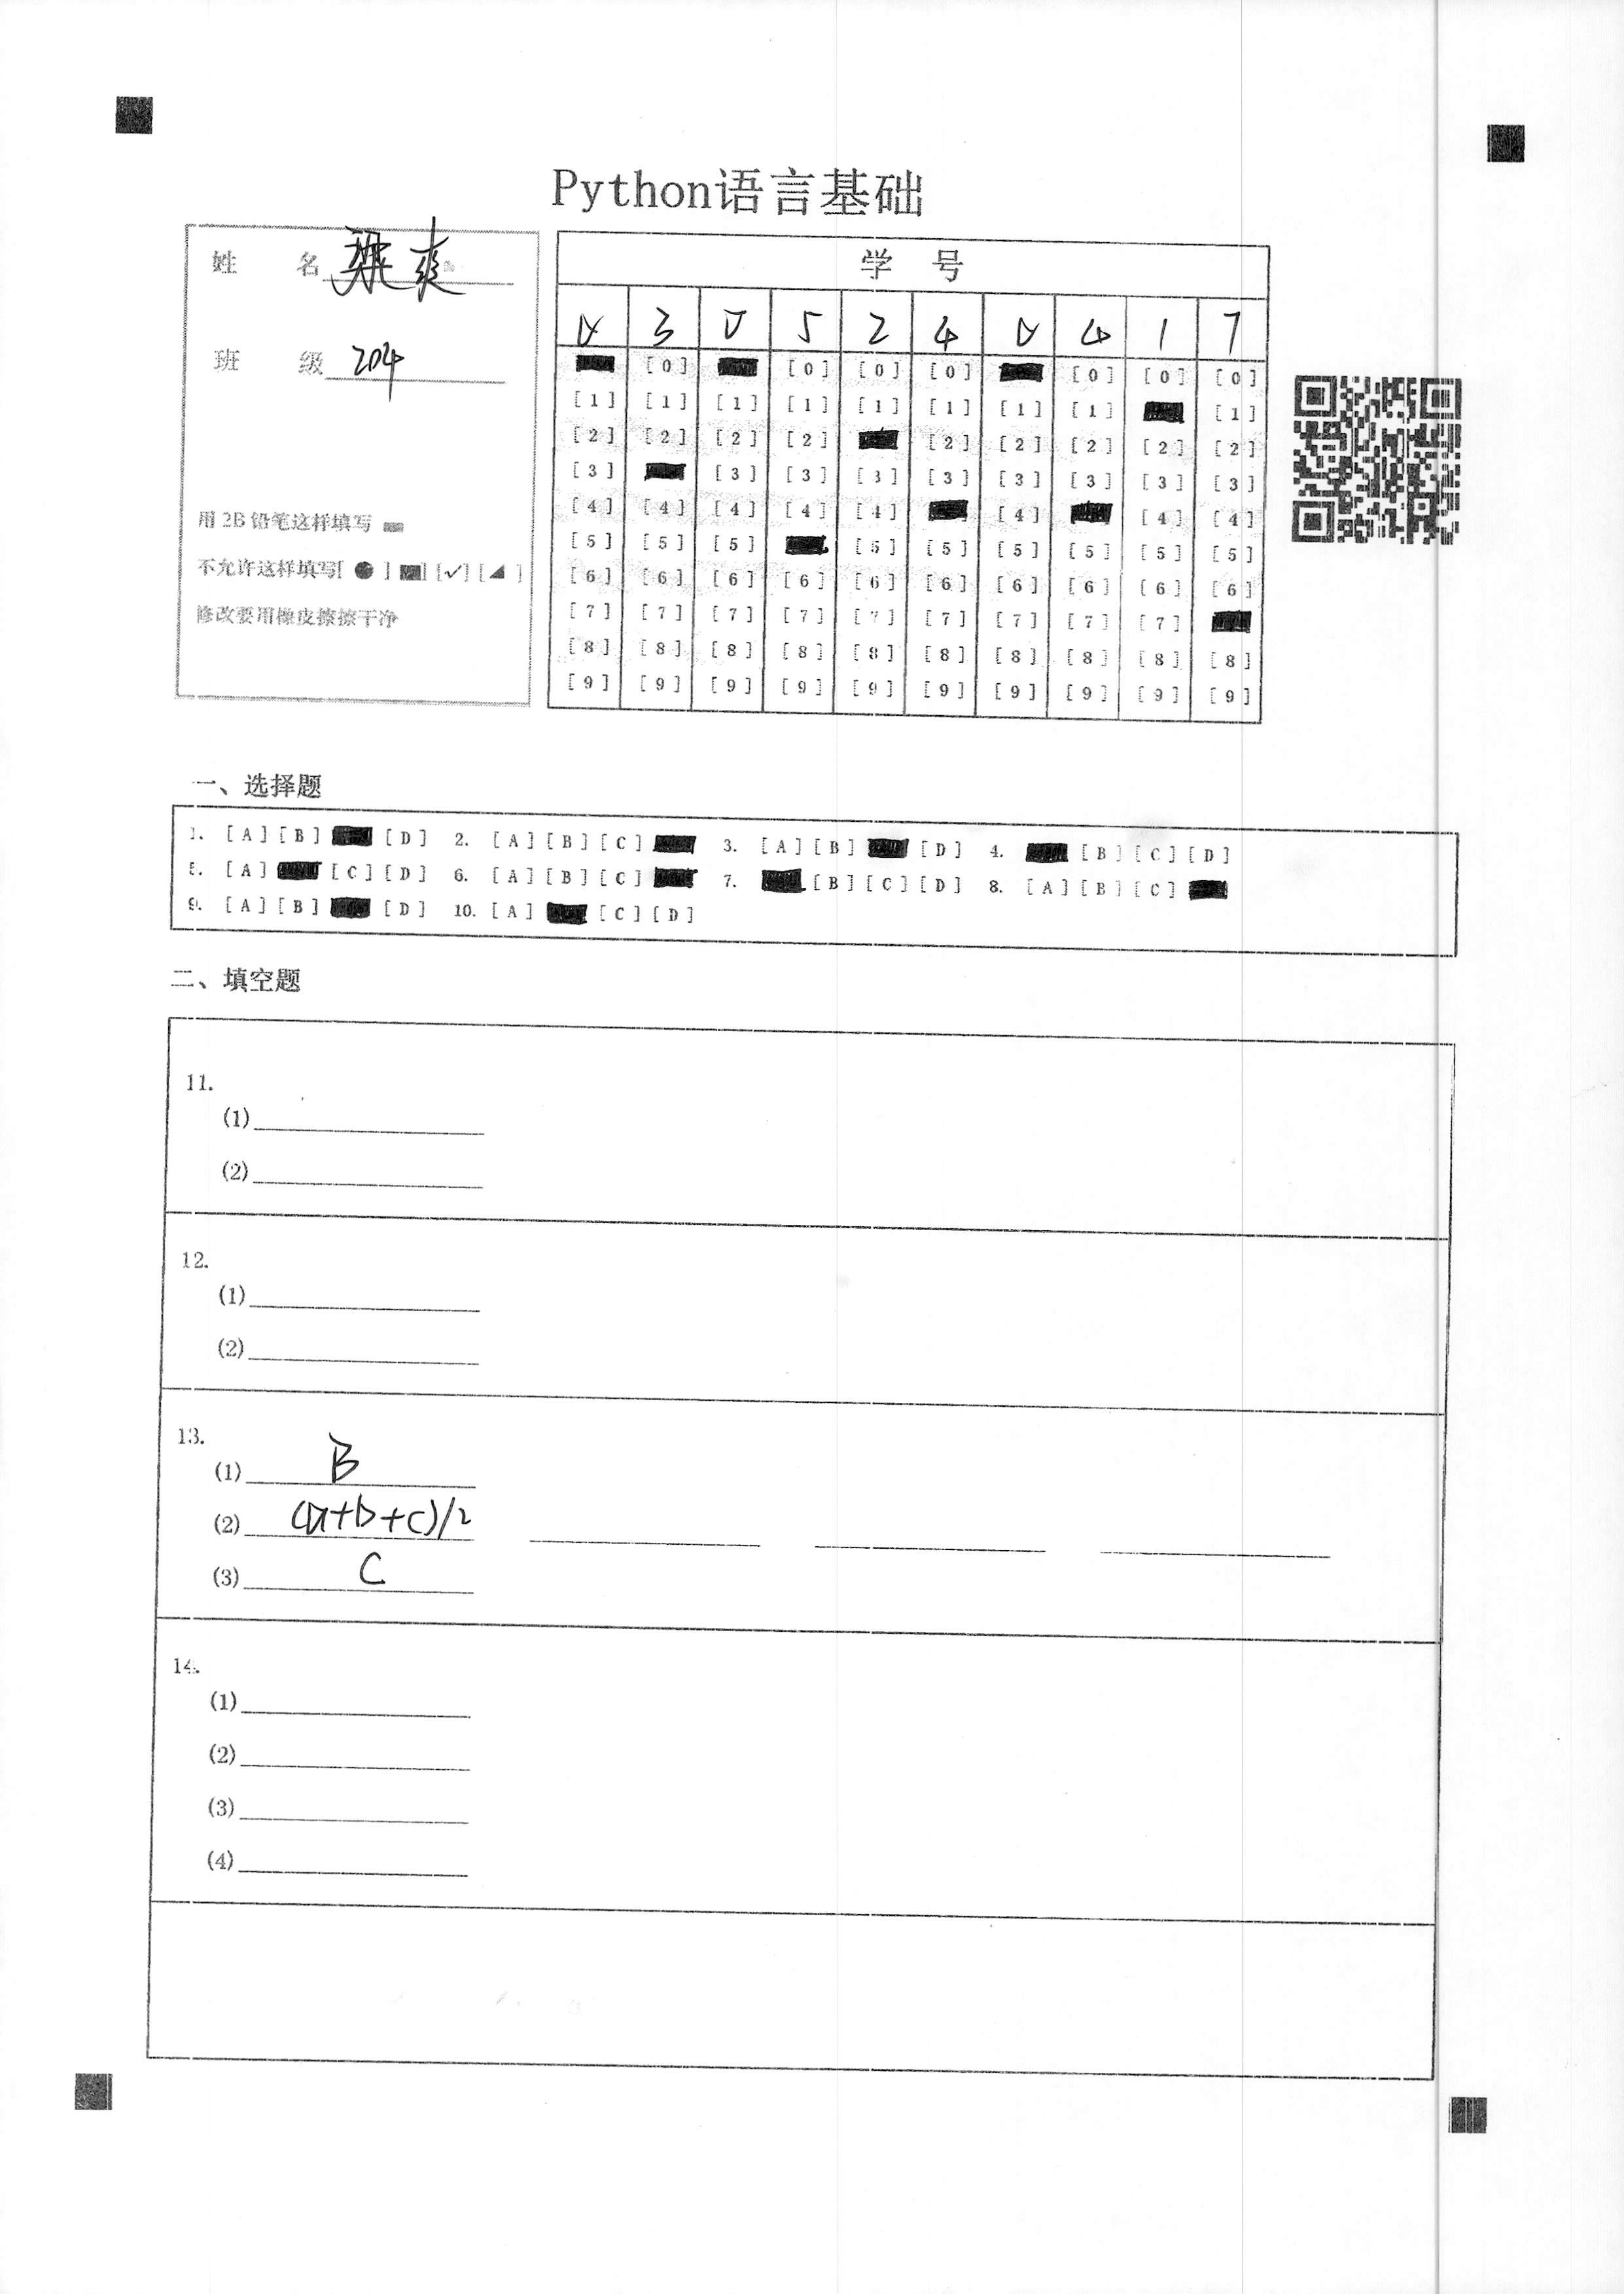 Python语言基础
姓 名 梁爽
班 级 204
用 2B 铅笔这样填写
不允许这样填写[ ● ] [■] [✓] [◢ ]
修改要用橡皮擦擦干净
学 号
0 3 0 5 2 4 0 4 1 7
[0] [0] [0] [0] [0] [0] [0]
[1] [1] [1] [1] [1] [1] [1] [1] [1]
[2] [2] [2] [2] [2] [2] [2] [2] [2]
[3] [3] [3] [3] [3] [3] [3] [3] [3]
[4] [4] [4] [4] [4] [4] [4] [4]
[5] [5] [5] [5] [5] [5] [5] [5] [5]
[6] [6] [6] [6] [6] [6] [6] [6] [6] [6]
[7] [7] [7] [7] [7] [7] [7] [7] [7]
[8] [8] [8] [8] [8] [8] [8] [8] [8] [8]
[9] [9] [9] [9] [9] [9] [9] [9] [9] [9]
一、选择题
1. [A] [B] [D] 2. [A] [B] [C] 3. [A] [B] [D] 4. [B] [C] [D]
5. [A] [C] [D] 6. [A] [B] [C] 7. [B] [C] [D] 8. [A] [B] [C]
9. [A] [B] [D] 10. [A] [C] [D]
二、填空题
11.
(1)
(2)
12.
(1)
(2)
13.
(1) B
(2) (a+b+c)/2
(3) C
14.
(1)
(2)
(3)
(4)